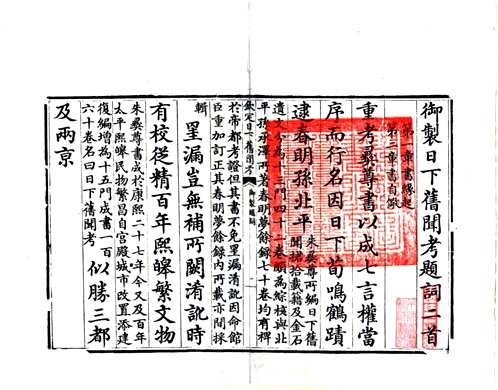 御製日下舊聞考題詞二首
重考彝尊書以成七言權當
序而行名因日下荀鳴鶴蹟
逮春明孫北平
朱彝尊所編日下舊
聞捃拾載籍及金石
遺文
平孫承澤所著春明夢餘錄七十卷均有稗
於帝都考證但其書不免罣漏滋訛因命館
臣重加訂正其春明夢餘錄内所載亦間採
輯
罣漏豈無補所闕淆訛時
有校從精百年熙皞繁文物
朱彝尊書成於康熙二十七年今又及百年
太平熙皞民物繁昌自宮殿城市改置添建
復編增為十五門成書一百
六十卷名曰日下舊聞考
似勝三都
及兩京
欽定日下舊聞考